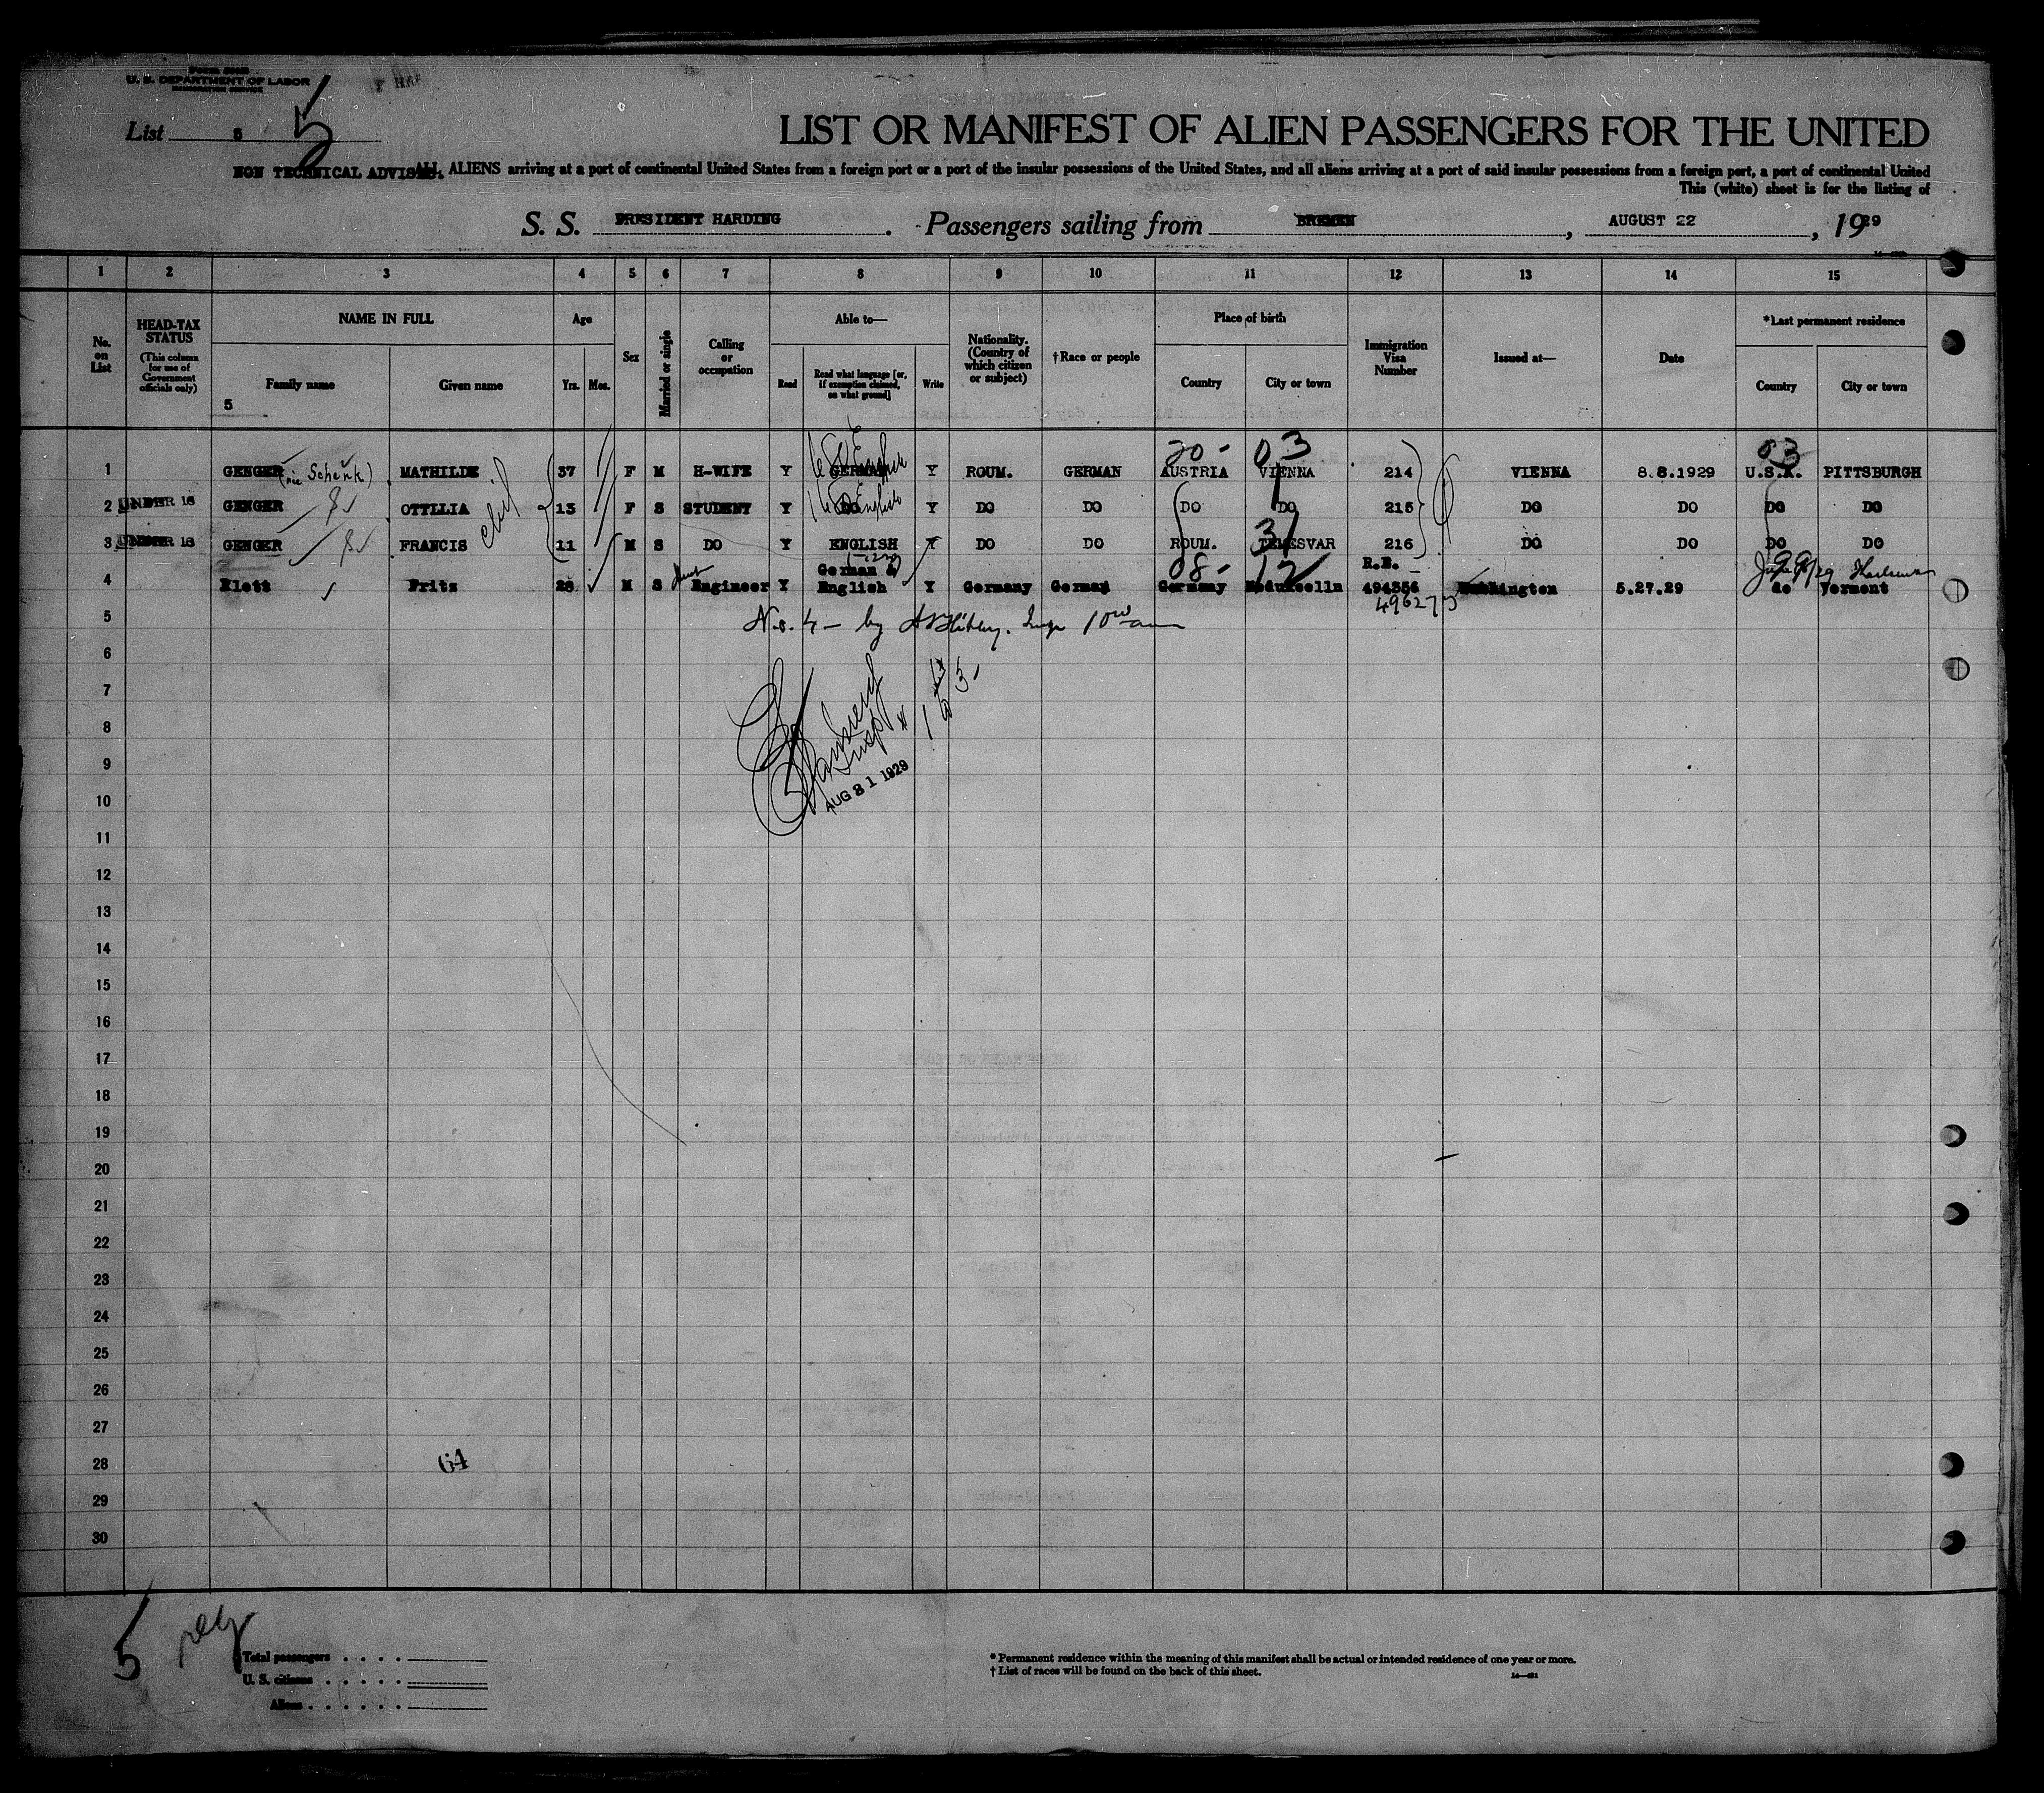 U. S. DEPARTMENT OF LABOR
List 5
5
LIST OR MANIFEST OF ALIEN PASSENGERS FOR THE UNITED
NON TECHNICAL ADVISES. ALL ALIENS arriving at a port of continental United States from a foreign port or a port of the insular possessions of the United States, and all aliens arriving at a port of said insular possessions from a foreign port, a port of continental United
This (white) sheet is for the listing of
S. S. PRESIDENT HARDING. Passengers sailing from BREMEN, AUGUST 22, 1929
1 2 3 4 5 6 7 8 9 10 11 12 13 14 15
No. on List
HEAD-TAX STATUS (This column for use of Government officials only)
NAME IN FULL
Family name
5
Given name
Age
Yrs. Mos.
Sex
Married or single
Calling or occupation
Able to—
Read
Read what language [or, if exemption claimed, on what ground]
Write
Nationality. (Country of which citizen or subject)
†Race or people
Place of birth
Country
City or town
Immigration Visa Number
Issued at—
Date
*Last permanent residence
Country
City or town
20- 03 03
1 GENGER (née Schenk) MATHILDE 37 F M H-WIFE Y GERMAN English Y ROUM. GERMAN AUSTRIA VIENNA 214 VIENNA 8.8.1929 U.S.A. PITTSBURGH
2 UNDER 16 GENGER OTTLLIA 13 F S STUDENT Y DO English Y DO DO DO DO 215 DO DO DO DO
3 UNDER 16 GENGER FRANCIS 11 M S DO Y ENGLISH Y DO DO ROUM. TEMESVAR 216 DO DO DO DO
08- 12 R.E.
4 Klett Fritz 28 M S Engineer Y German & English Y Germany German Germany 494556 Washington 5.27.29 do Vermont
496273
5 No. 4 - by
6
7
8
Insp
9
AUG 31 1929
10
11
12
13
14
15
16
17
18
19
20
21
22
23
24
25
26
27
28 64
29
30
5
Total passengers
U. S. citizens
Aliens
* Permanent residence within the meaning of this manifest shall be actual or intended residence of one year or more.
† List of races will be found on the back of this sheet.